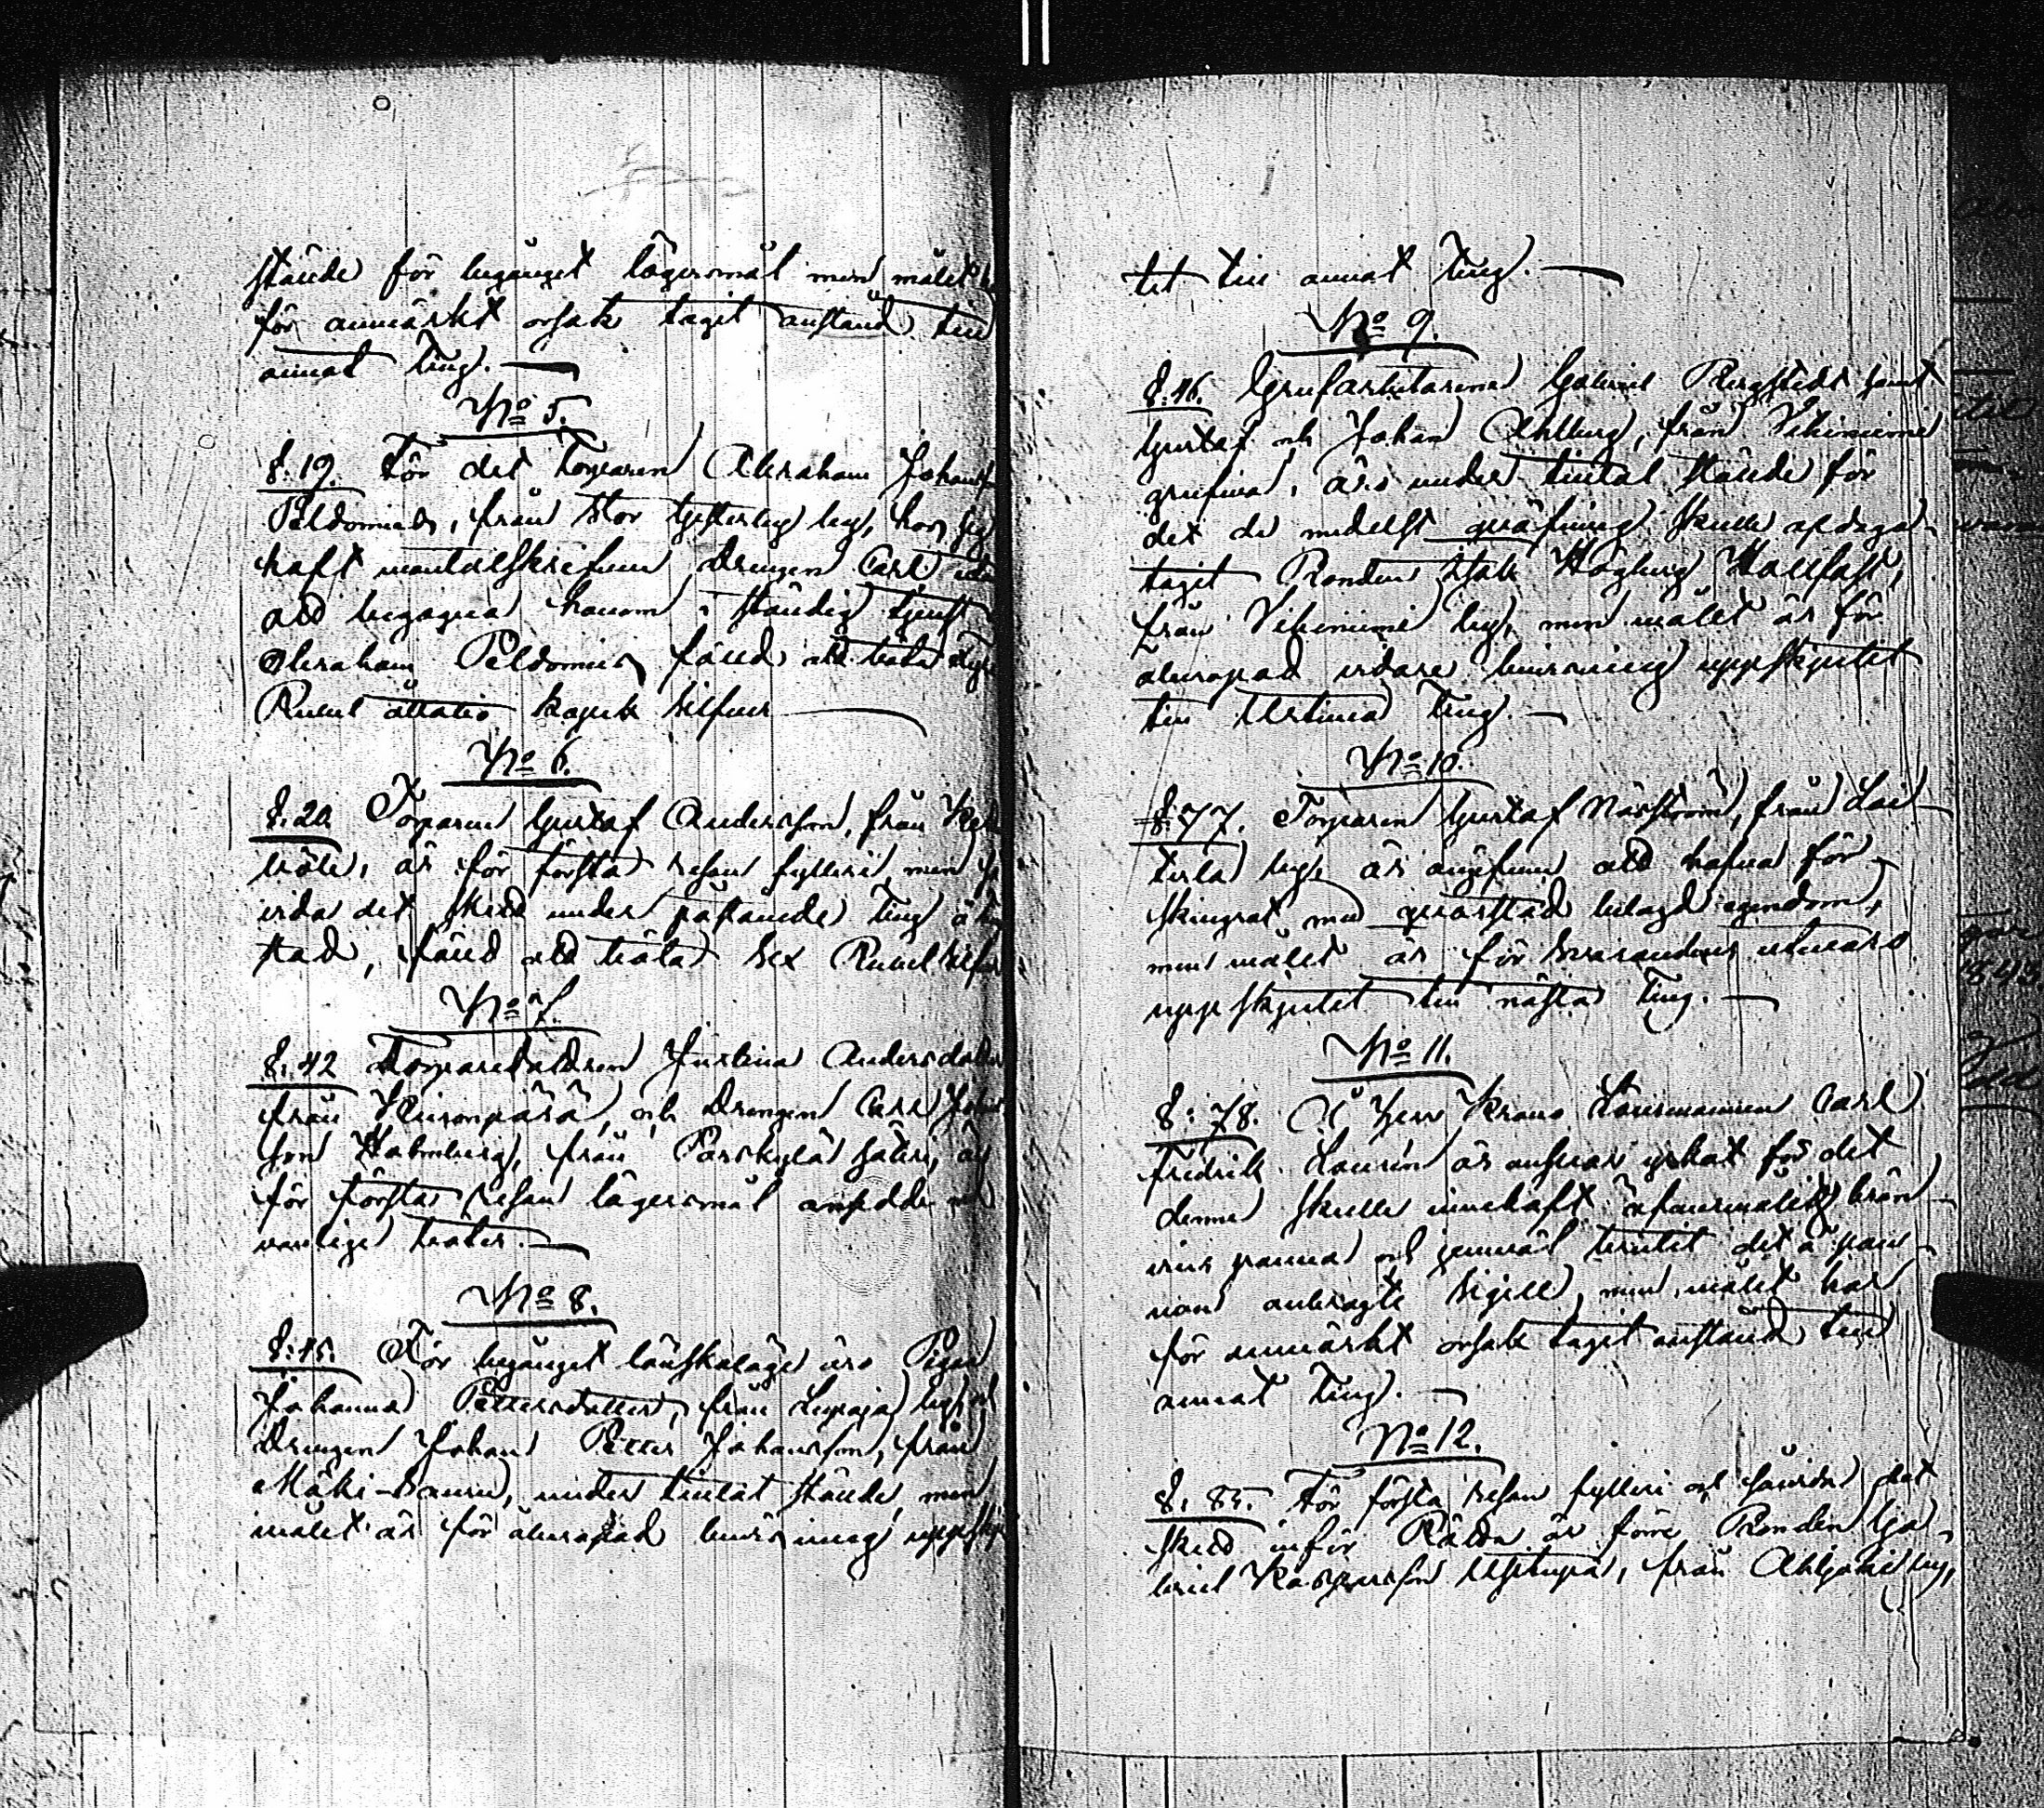 stånde för begånget lägersmål men målet
för anmärkt orsak tagit anstånd till
annat Ting.
No 5.
§. 19. För det Torparen Abraham Johans
Peldomies, från Stor Tjefterby by, 
haft mantalskrifven Drengen Carl
att begagna honom i ständig tjenst
Abraham Peldomies fälld att böta
Rubel åttatio kopek Silfver
No 6.
§. 20. Torparen Gustaf Andersson, från
böle, är för första resan fylleri, men
det skedd under påstående Ting
stad, fälld att böta Sex Rubel Silfver
No 7.
§. 42 Torparedottren Justina Andersdotter
från Kuronperä, och Drengen Carl Johans
son Holmberg, från Parskylä Säteri,
för första resan lägersmål ansedde
vanliga böter.
No 8.
§. 45. För begånget lönskaläge äro Pigan
Johanna Pettersdotter, från Lupaja by,
Drengen Johan Petter Johansson, från
Mäki-Sauru, under tiltal stånde, men
målet är för åberopad bevisning uppskju
tet till annat Ting.
No 9.
§. 46. Grufarbetarene Gabriel Bergstedt samt
Gustaf och Johan Ahlberg, från Vihiniemi
grufva, äro under tiltal stånde för
det de medelst gräfning skulle afdaga
tagit Bonden Isak Högberg Hallfast,
från Vihiniemi by, men målet är för
åberopad vidare bevisning uppskjutit
till Urtima Ting.
No 10.
§. 77. Torparen Gustaf Närström, från Lai
tila by, är angifven att hafva för
skingrat med qvarstad belagd egendom,
men målet är för Svarandens utevaro
uppskjutet till nästa Ting.
No 11.
§. 78. Å Herr Krono Länsmannen Carl
Fredrik Laurén är ansvar yrkat för det
denne skulle innehaft 
panna och jemväl brutit det å pan
nan anbragte Sigill, men målet har
för anmärkt orsak tagit anstånd till
annat Ting.
No 12.
§. 85. För första resan fylleri och det
skedd inför Rätta är förre Bonden Ga
briel Kaspersson Uhitupa, från Ahljoki by,